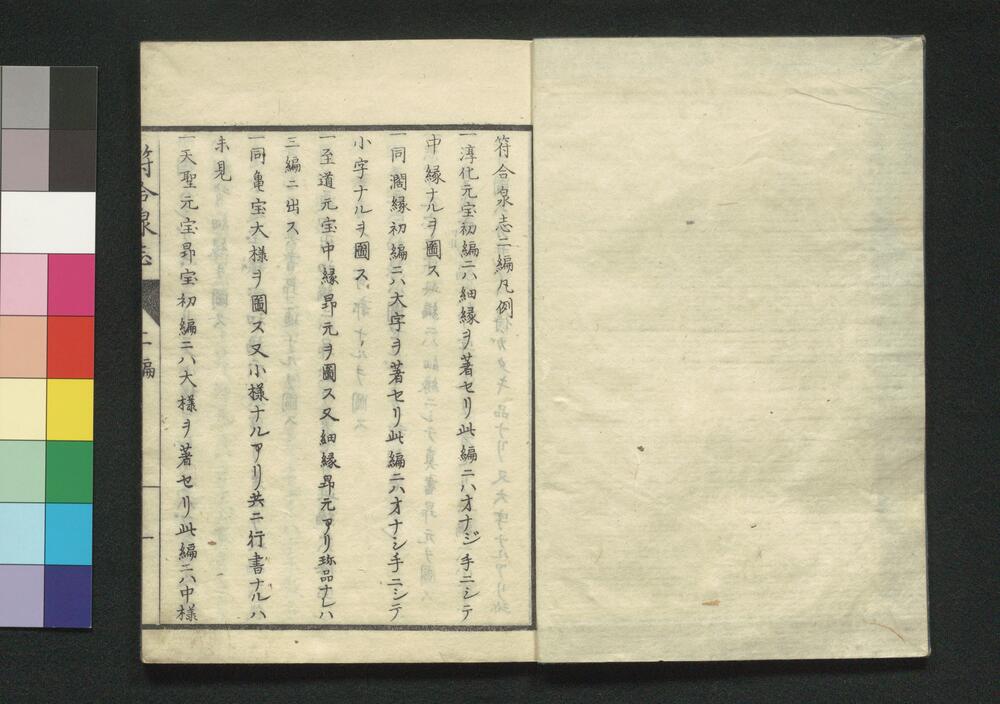 符合泉志二編凡例
一淳化元宝初編ニハ細縁ヲ著セリ此編ニハオナジ手ニシテ
中縁ナルヲ圖ス
一同濶縁初編ニハ大字ヲ著セリ此編ニハオナシ手ニシテ
小字ナルヲ圖ス
一至道元宝中縁昂元ヲ圖ス又細縁昂元アリ珎品ナレハ
三編ニ出ス
一同亀宝大様ヲ圖ス又小様ナルアリ共ニ行書ナルハ
未見
一天聖元宝昂宝初編ニハ大様ヲ著セリ此編ニハ中様
符合泉志 二編 一